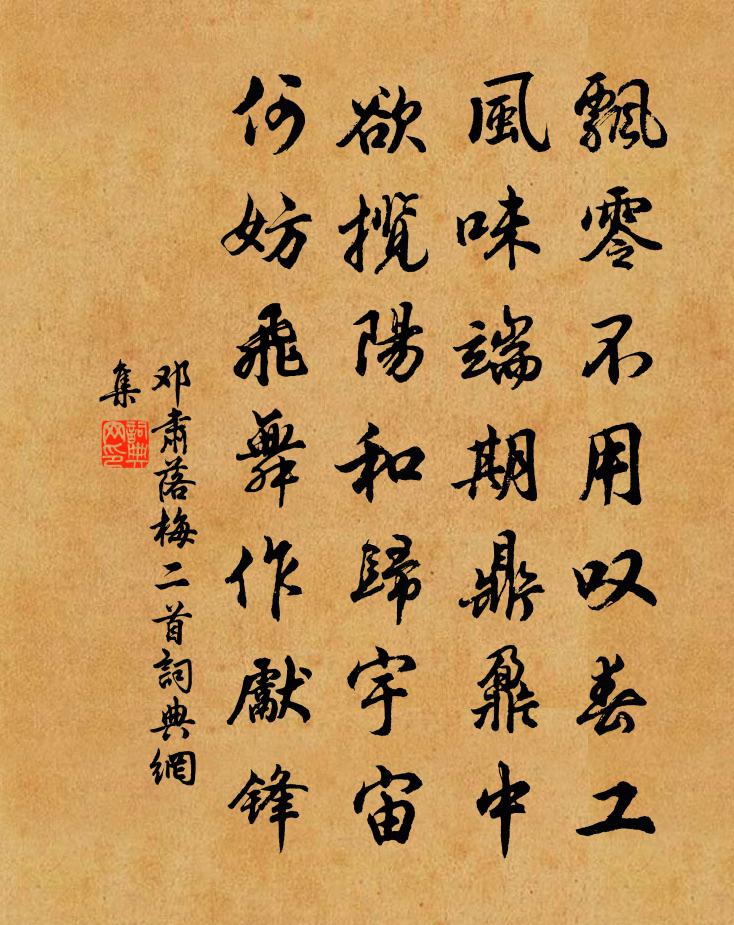 飄零不用叹春工
風味端期鼎鼐中
欲攬陽和歸宇宙
何妨飛舞作獻锋
邓肃落梅二首詞典網
集
詞典
网印